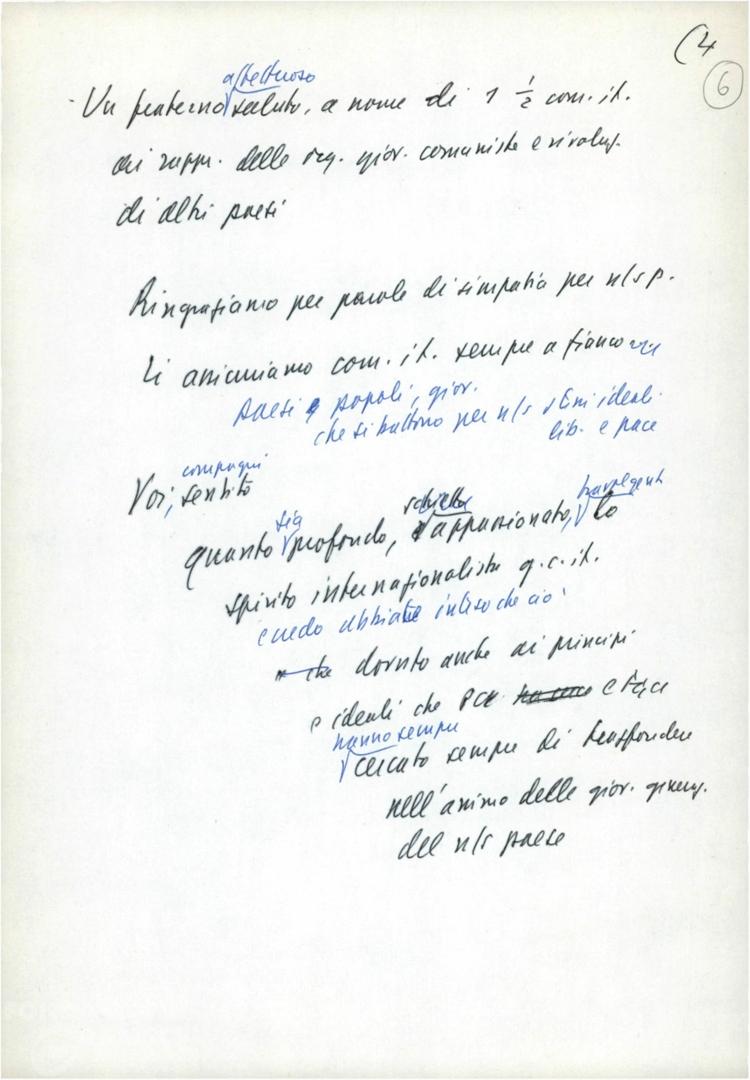 (4
6
affettuoso
- Un fraterno saluto, a nome di 1 ½ com. it.
ai rappr. delle org. giov. comuniste e rivoluz.
di altri paesi
Ringraziamo per parole di simpatia per n/s p.
Li assicuriamo com. it. sempre a fianco
paesi e popoli, giov.
che si battono per n/s stessi ideali
lib. e pace
compagni
Voi, sentito
sia schietto travolgente
quanto profondo, appassionato, lo
spirito internazionalista g. c. it.
credo abbiate inteso che ciò
che dovuto anche ai principi
e ideali che PCI hanno e FGCI
hanno sempre
cercato sempre di trasfondere
nell'animo delle giov. generaz.
del n/s paese